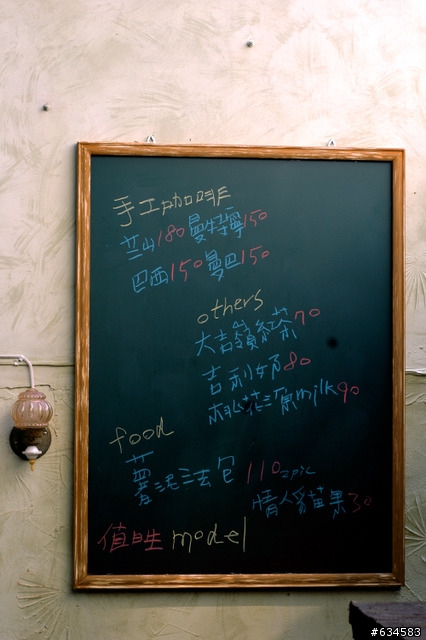 手工咖啡
兰山180 曼特寧150
巴西150 曼巴150
others
大吉嶺紅茶70
吉利奶80
milk90
food
薯泥法包 110 2pic
情人貓果30
值日生 model
#634583